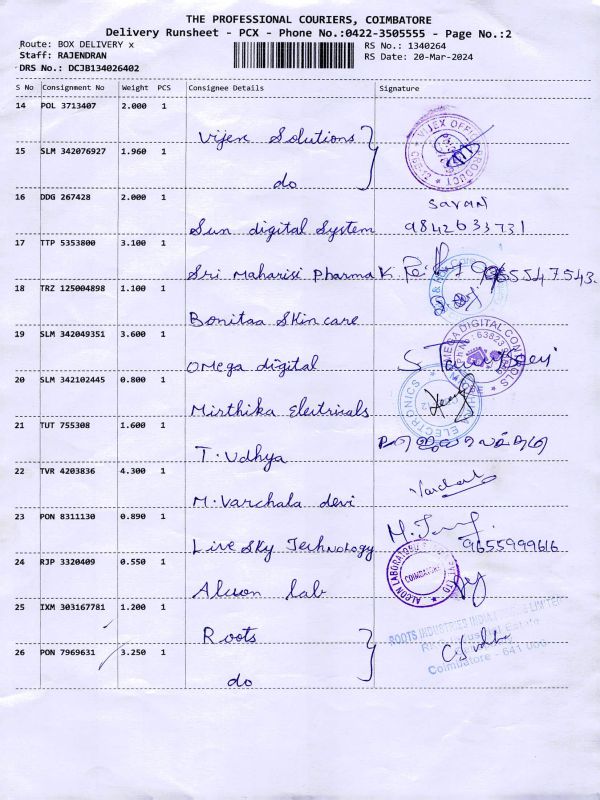 THE PROFESSIONAL COURIERS, COIMBATORE
Delivery Runsheet - PCX - Phone No.:0422-3505555 - Page No.:2
Route: BOX DELIVERY x
RS No.: 1340264
Staff: RAJENDRAN
RS Date: 20-Mar-2024
DRS No.: DCJB134026402
S No Consignment No Weight PCS Consignee Details Signature
14 POL 3713407 2.000 1
Vijex Solutions
15 SLM 342076927 1.960 1
do
16 DDG 267428 2.000 1
Sun digital System
9842633731
17 TTP 5353800 3.100 1
Sri Maharisi Pharma
18 TRZ 125004898 1.100 1
Bonitaa Skin care
19 SLM 342049351 3.600 1
OMega digital
20 SLM 342102445 0.800 1
Mirthika Electricals
21 TUT 755308 1.600 1
T. Udhya
22 TVR 4203836 4.300 1
M. Varchala devi
23 PON 8311130 0.890 1
Live Sky Technology
9655999616
24 RJP 3320409 0.550 1
Alcon lab
25 IXM 303167781 1.200 1
Roots
ROOTS INDUSTRIES INDIA LIMITED
26 PON 7969631 3.250 1
Coimbatore - 641
do